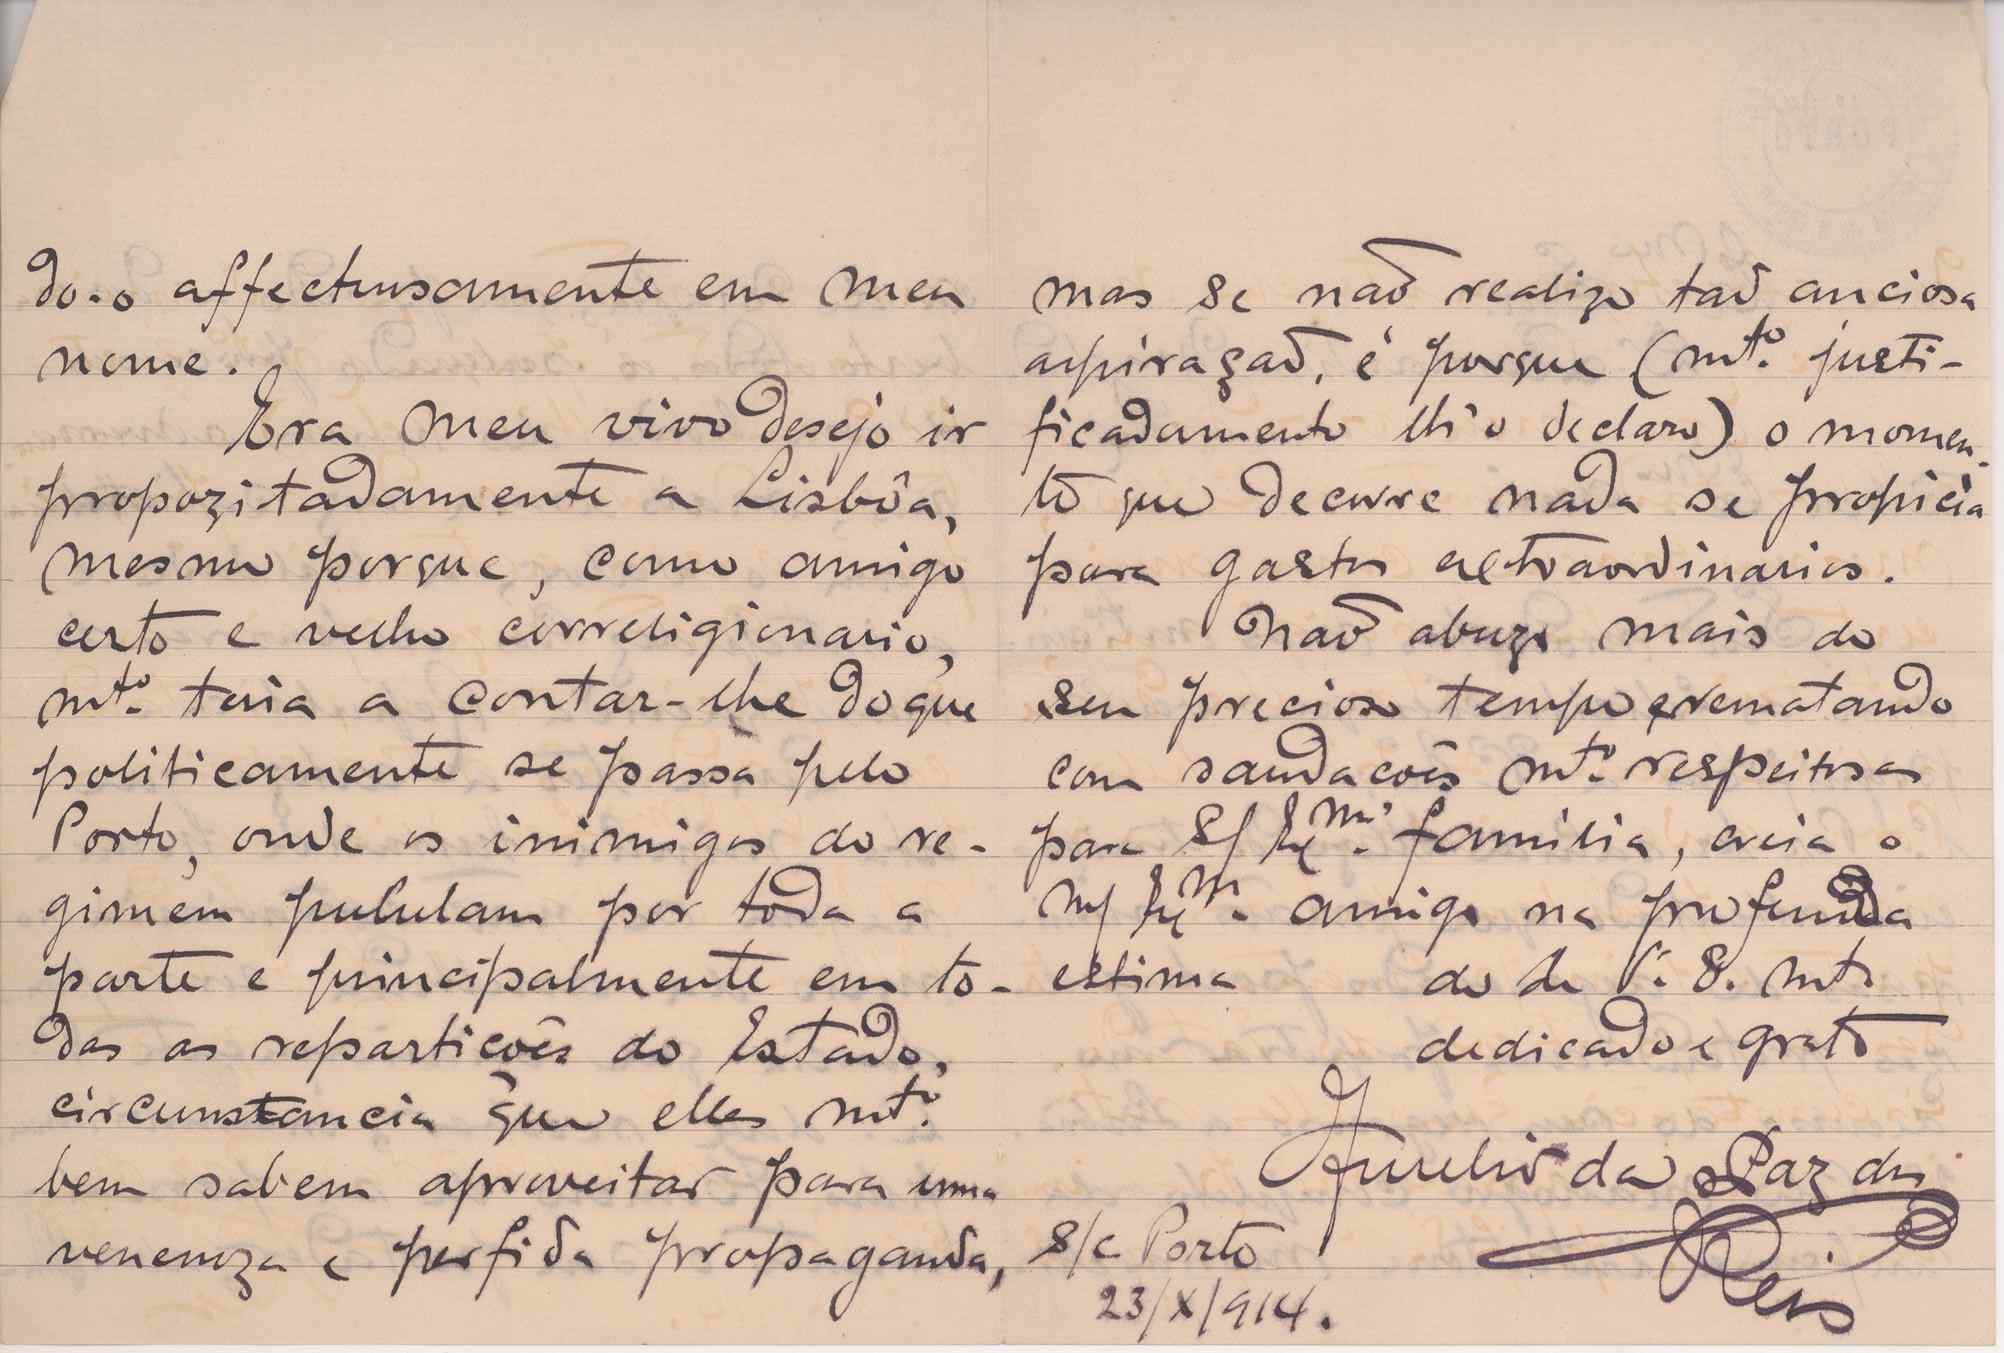 do-o affectuosamente em meu
nome.
Era meu vivo desejo ir
propozitadamente a Lisbôa,
mesmo porque, como amigo
certo e velho correligionario,
mtº. teria a contar-lhe do que
politicamente se passa pelo
Porto, onde os inimigos do re-
gimem pululam por toda a
parte e principalmente em to-
das as repartições do Estado,
circumstancia que elles mtº.
bem sabem aproveitar para uma
venenoza e perfida propaganda,
mas se naõ realizo taõ anciosa
aspiraçaõ, é porque (mtº. justi-
ficadamente lh'o declaro) o momen-
to que decorre nada se propicia
para gastos extraordinarios.
Naõ abuzo mais do
seu precioso tempo e rematando
com saudacões mtº. respeitosas
para S/ Exmª. familia, creia o
m/ Exm. amigo na profunda
estima do de V. S. mtº
dedicado e grato
Aurelio da Paz dos
Reis
S/c Porto
23/X/914.
PORTO